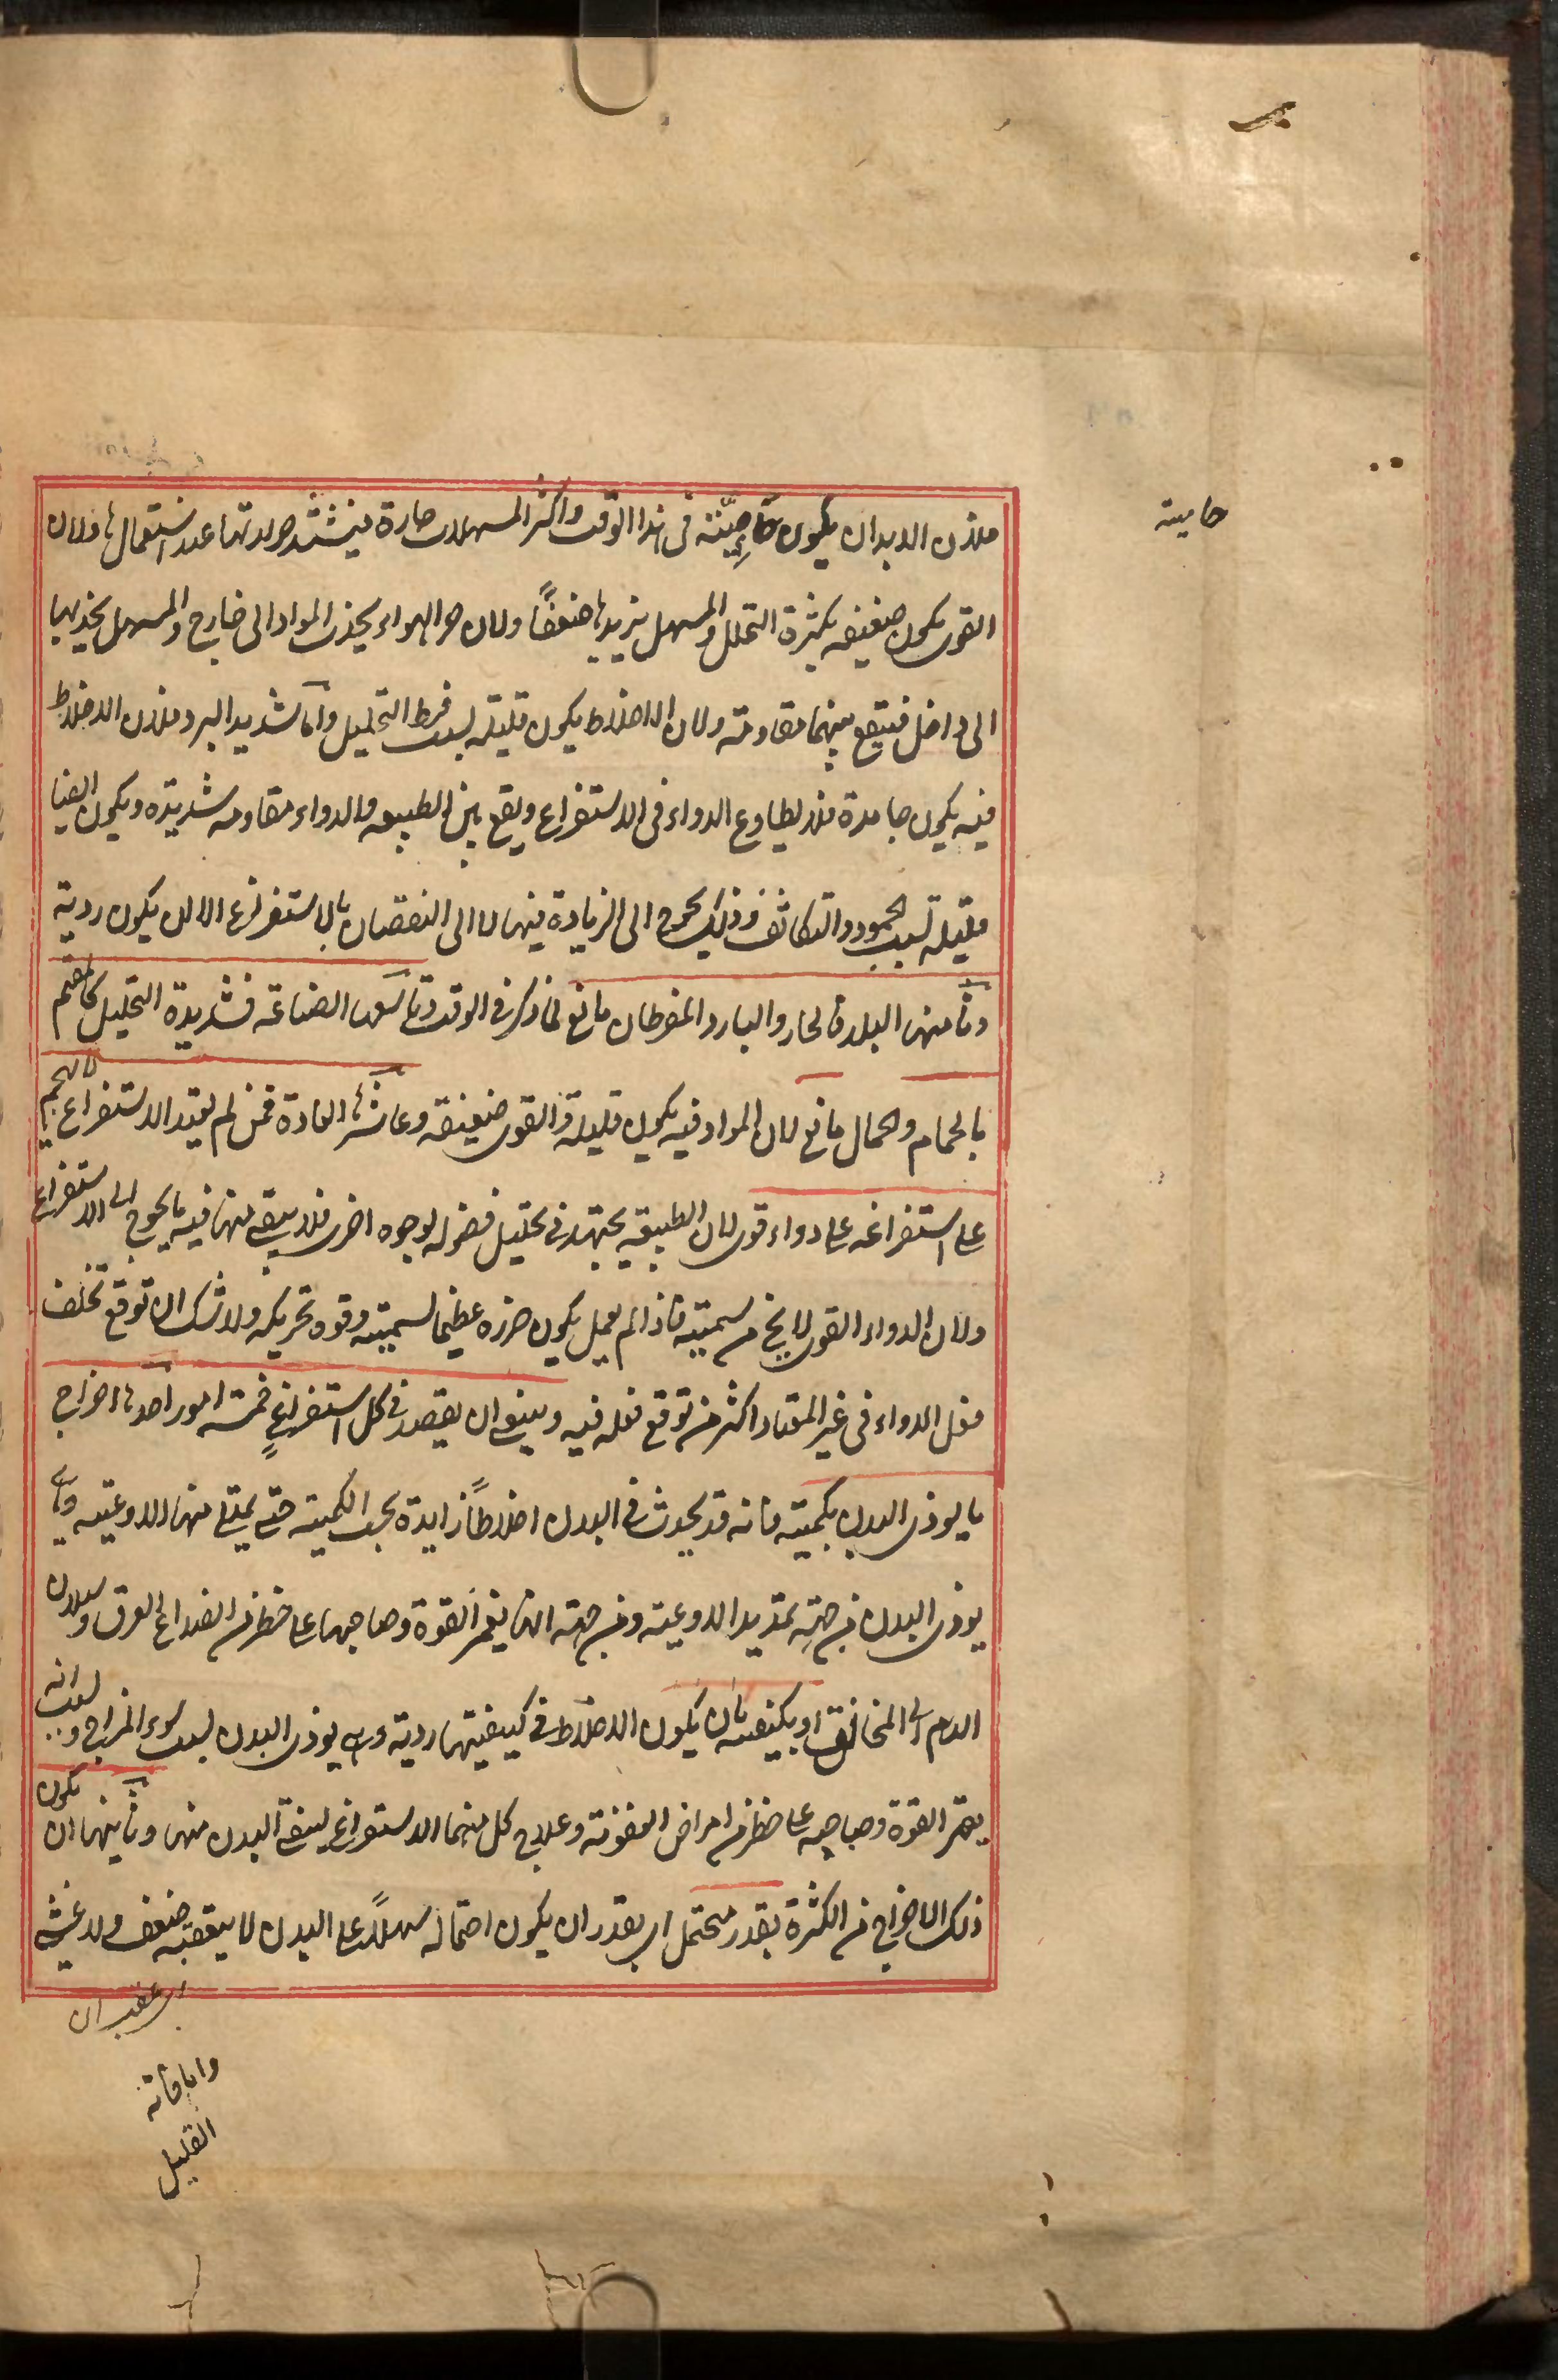 حامية
فلان الابدان يكون حامية في هذا الوقت واكثر المسهلات حارة فيشتد حرارتها عند استعمالها ولان
القوى يكون ضعيفه بكثرة التحلل والمسهل يزيدها ضعفًا ولان حر الهواء يجذب المواد الى خارج والمسهل يجذبها
الى داخل فيقع بينهما مقاومة ولان الاخلاط يكون قليلة لسبب فرط التحليل واما شديد البرد فلان الاخلاط
فيه يكون جامدة فلا يطاوع الدواء في الاستفراغ ويقع بين الطبيعه والدواء مقاومه شديده ويكون ايضا
قليله بسبب الجمود والتكاثف وذلك يحوج الى الزيادة فيها لا الى النقصان بالاستفراغ الا ان يكون ردية
وثامنها البلد فالحار والبارد المفرطان مانع لما ذكر في الوقت وتاسعها الصناعة فشديدة التحليل كالقيم
بالحمام والحمال مانع لان المواد فيه يكون قليلة والقوى ضعيفة وعاشرها العادة فمن لم يعتد الاستفراغ لا يهجم
على استفراغه على دواء قوى لان الطبيعة يجتهد في تحليل فضوله لوجوه اخرى فلا يبقى منها فيه ما يحوج الى الاستفراغ
ولان الدواء القوى لا يخ من سمية فاذا لم يعمل يكون ضرره عظيما لسميته وقوة تحريكه ولا شك ان توقع تخلف
فعل الدواء في غير المعتاد اكثر من توقع فعله فيه وينبغي ان يقصد في كل استفراغٍ خمسة امور احدها اخراج
ما يوذى البدن بكميته فانه قد يحدث في البدن اخلاطًا زايدة بحسب الكمية حتى يمتلى منها الاوعيه وهي
يوذى البدن من جهة تمديد الاوعية ومن جهة انها يغمر القوة وصاحبها على خطر من انصداع العرق وسيلان
الدم الى المخانق او بكيفيته بان يكون الاخلاط في كيفيتها ردية وهي يوذى البدن بسبب سوء المزاج وبسبب انه
يقهر القوة وصاحبه على خطر من امراض العفونة وعلاج كل منهما الاستفراغ لينقى البدن منها وثانيها ان يكون
ذلك الاخراج من الكثرة بقدر محتمل اى بقدر ان يكون احتماله سهلًا على البدن لا يعقبه ضعف ولا غشى
اى عقب ان
القليل